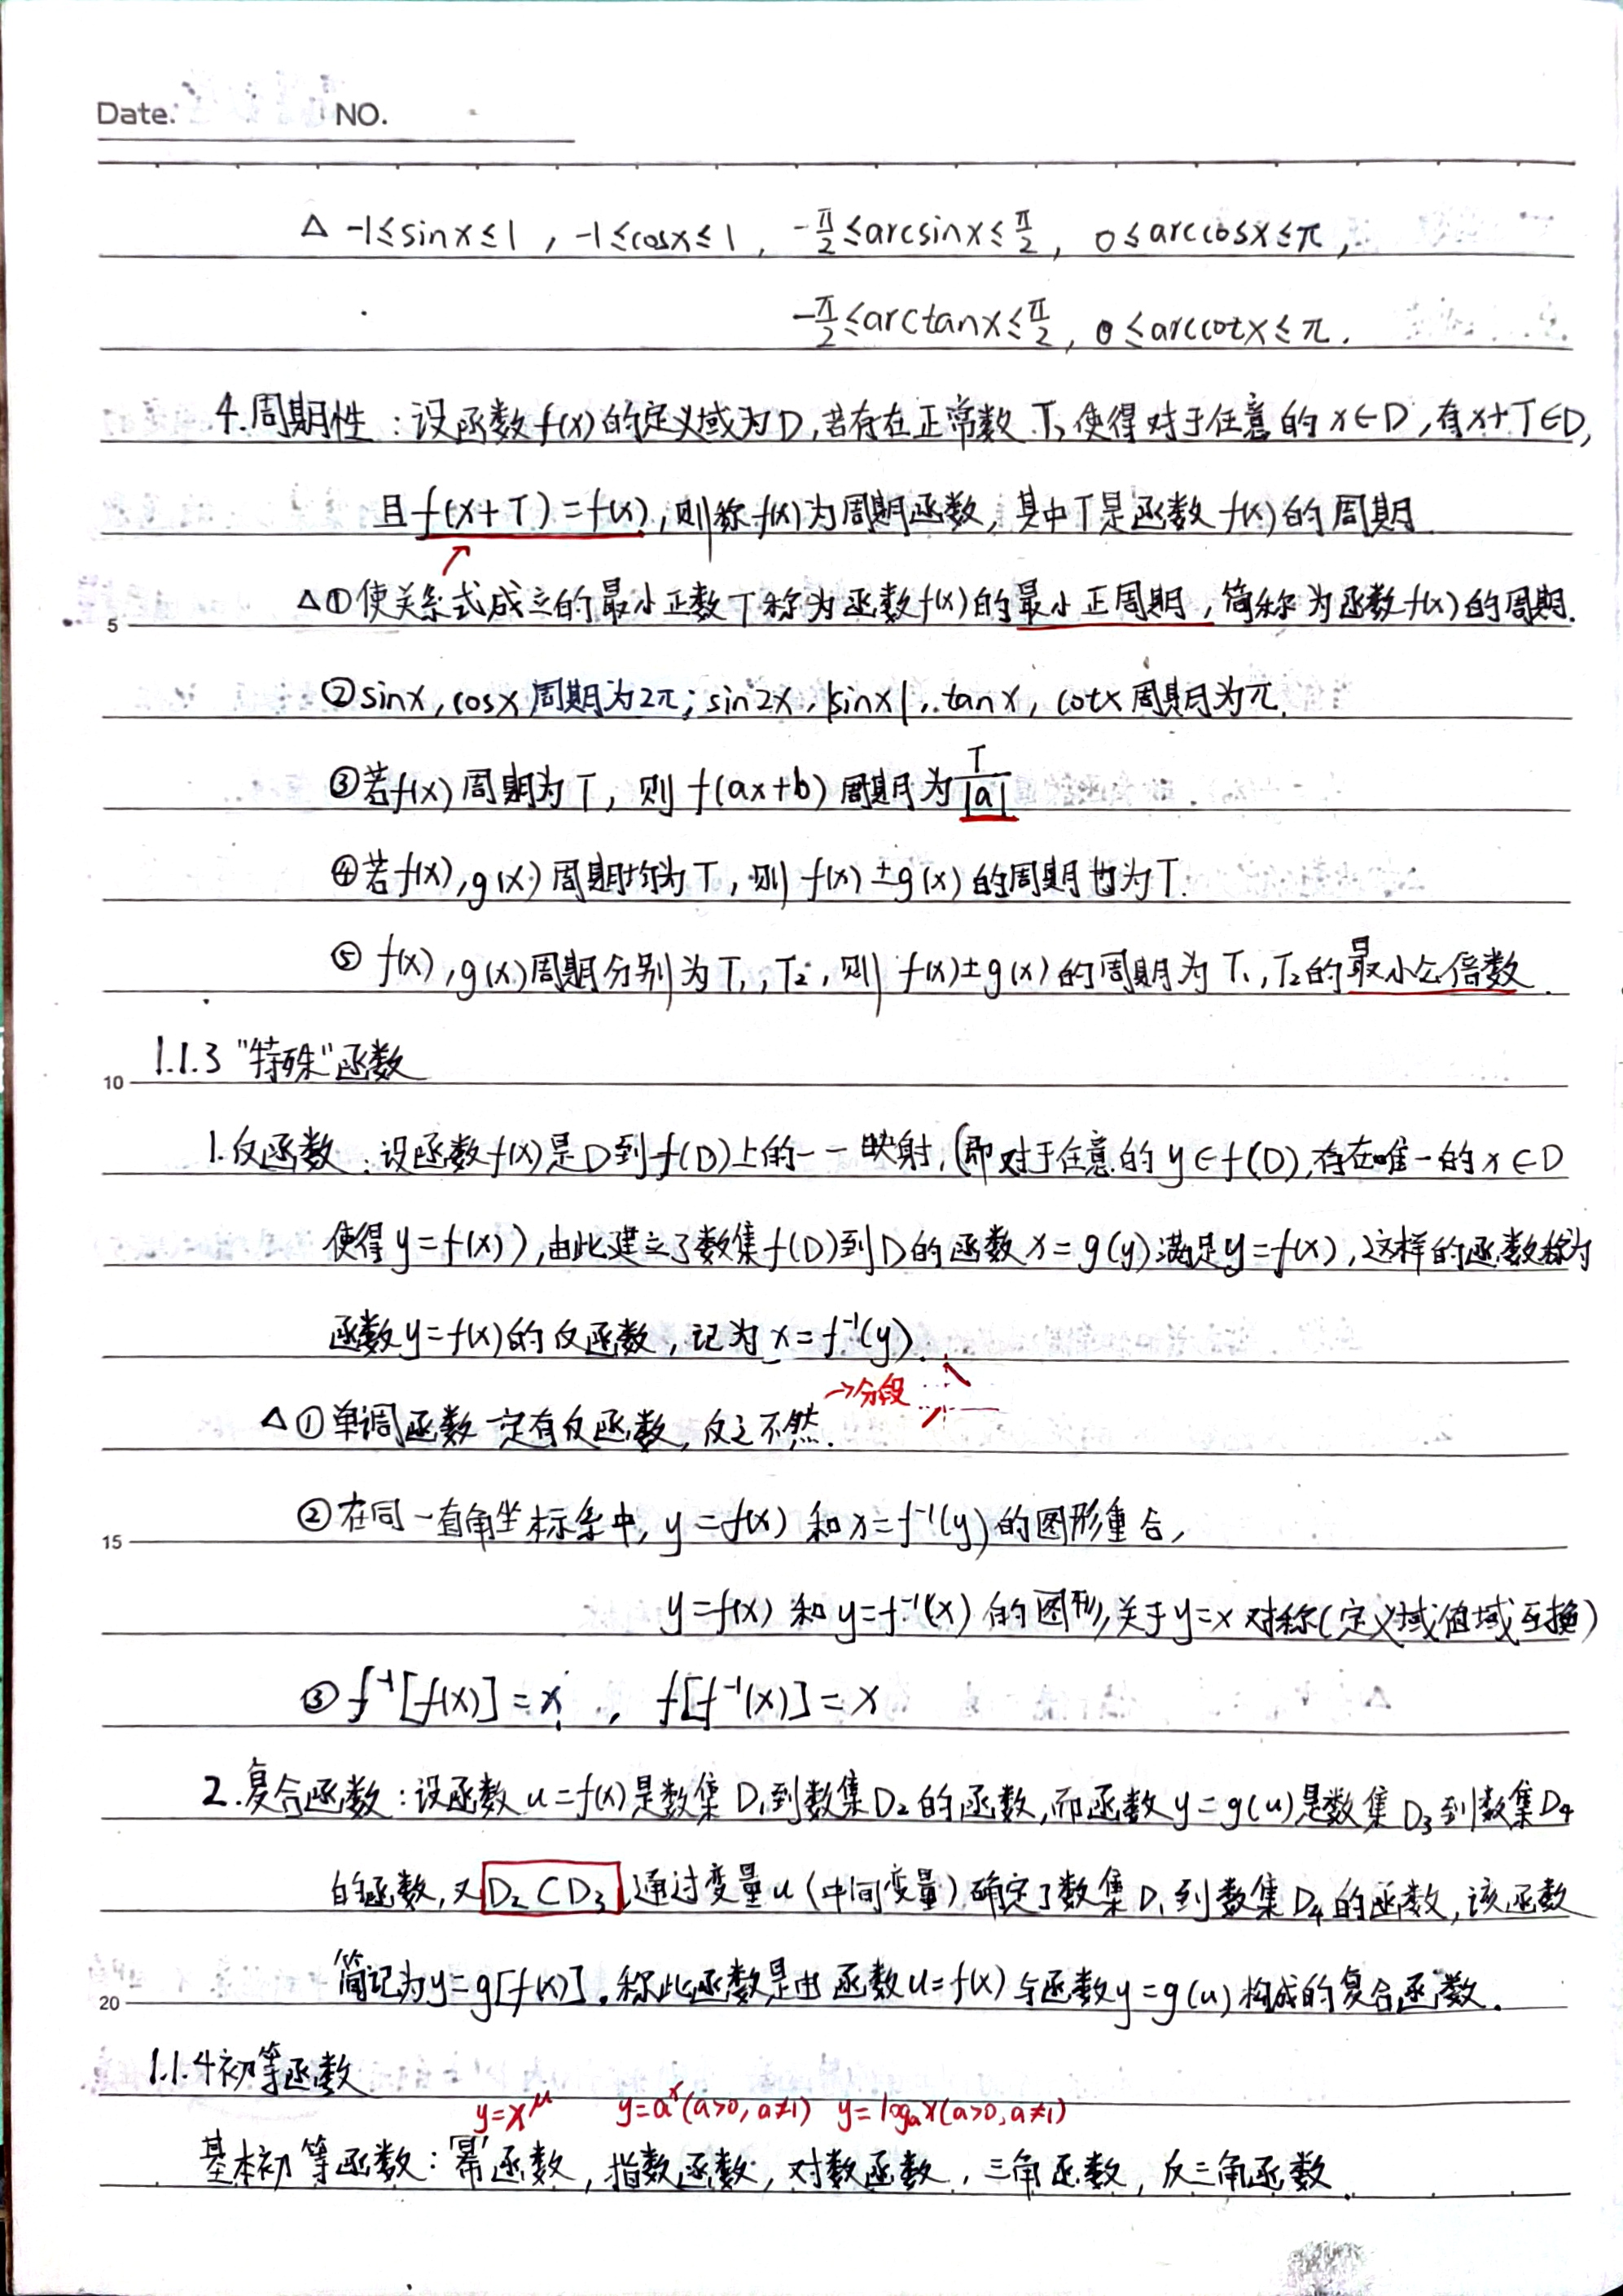 Date. NO.
△ -1≤sinx≤1, -1≤cosx≤1, -π/2≤arcsinx≤π/2, 0≤arccosx≤π,
-π/2≤arctanx≤π/2, 0≤arccotx≤π.
4.周期性:设函数f(x)的定义域为D,若存在正常数T,使得对于任意的x∈D,有x+T∈D,
且f(x+T)=f(x),则称f(x)为周期函数,其中T是函数f(x)的周期.
△①使关系式成立的最小正数T称为函数f(x)的最小正周期,简称为函数f(x)的周期.
5
②sinx,cosx周期为2π;sin2x,|sinx|,tanx,cotx周期为π.
③若f(x)周期为T,则f(ax+b)周期为T/|a|
④若f(x),g(x)周期均为T,则f(x)±g(x)的周期也为T.
⑤f(x),g(x)周期分别为T₁,T₂,则f(x)±g(x)的周期为T₁,T₂的最小公倍数.
1.1.3"特殊"函数
10
1.反函数:设函数f(x)是D到f(D)上的一一映射,(即对于任意的y∈f(D),存在唯一的x∈D
使得y=f(x)),由此建立了数集f(D)到D的函数x=g(y)满足y=f(x),这样的函数称为
函数y=f(x)的反函数,记为x=f⁻¹(y).
→分段
△①单调函数一定有反函数,反之不然.
②在同一直角坐标系中,y=f(x)和x=f⁻¹(y)的图形重合,
15
y=f(x)和y=f⁻¹(x)的图形关于y=x对称(定义域值域互换)
③f⁻¹[f(x)]=x, f[f⁻¹(x)]=x
2.复合函数:设函数u=f(x)是数集D₁到数集D₂的函数,而函数y=g(u)是数集D₃到数集D₄
的函数,又D₂⊂D₃,通过变量u(中间变量)确定了数集D₁到数集D₄的函数,该函数
简记为y=g[f(x)].称此函数是由函数u=f(x)与函数y=g(u)构成的复合函数.
20
1.1.4初等函数
y=x^μ y=aˣ(a>0,a≠1) y=logₐx(a>0,a≠1)
基本初等函数:幂函数,指数函数,对数函数,三角函数,反三角函数.